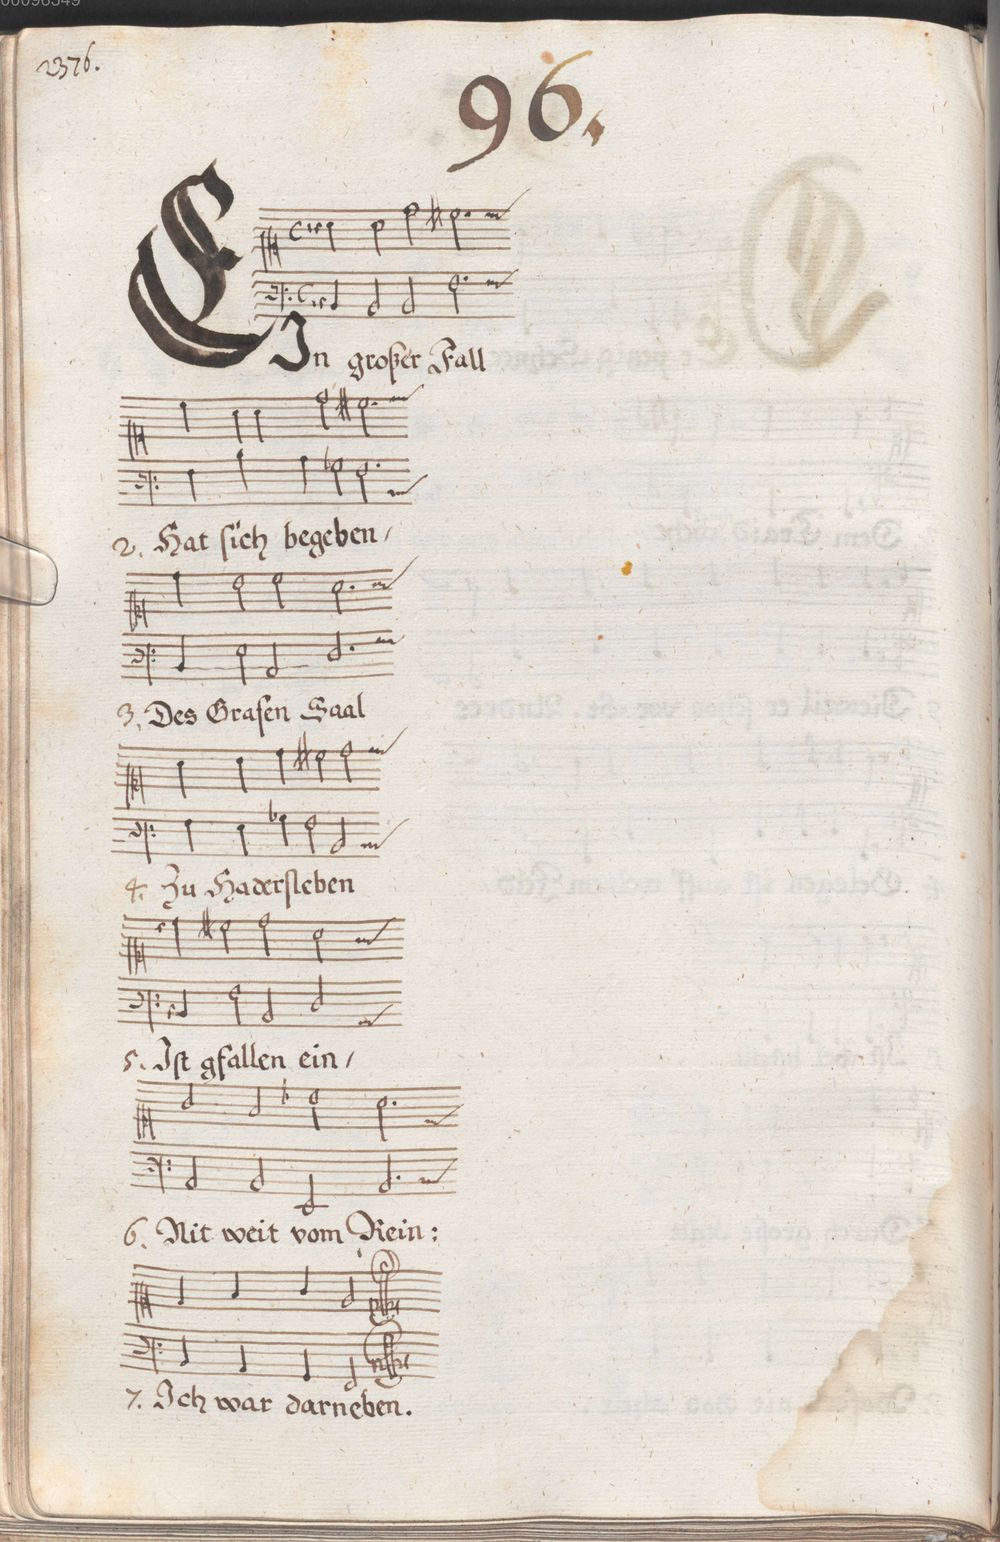 00096349
2376.
96.
EIn großer Fall
2. Hat sich begeben/
3. Des Grafen Saal
4. Zu Hadersleben
5. Ist gfallen ein/
6. Nit weit vom Rein:
7. Ich war darneben.